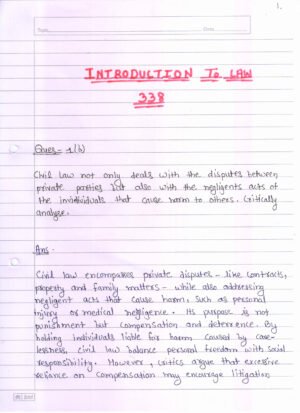 1.
Topic
Date
INTRODUCTION TO LAW
338
Ques - 1(b)
Civil law not only deals with the disputes between
private parties but also with the negligents acts of
the inidividuals that cause harm to others. Critically
analyze.
Ans -
Civil law encompasses private disputes - like contracts,
property and family matters - while also addressing
negligent acts that cause harm, such as personal
injury or medical negligence. Its purpose is not
punishment but compensation and deterrence. By
holding individuals liable for harm caused by care-
lessness, civil law balance personal freedom with social
responsibility. However, critics argue that excessive
reliance on compensation may encourage litigation